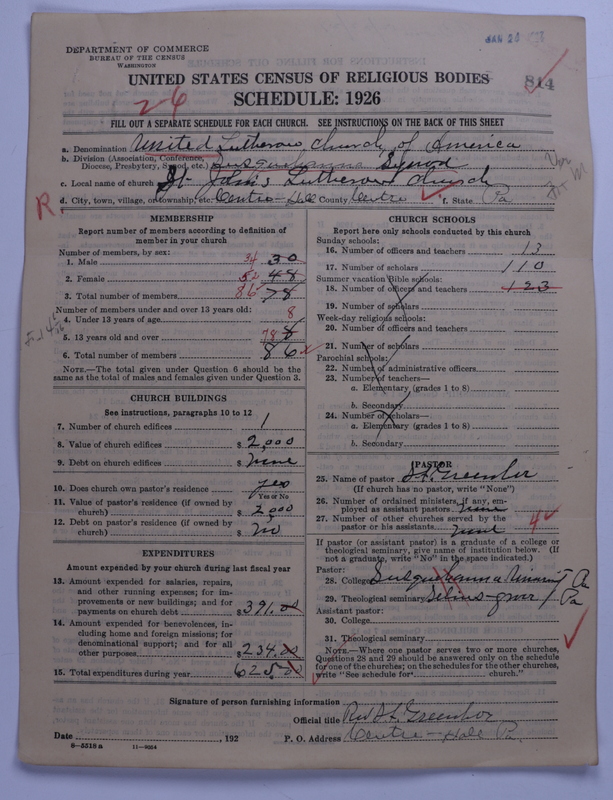 JAN 24
DEPARTMENT OF COMMERCE
BUREAU OF THE CENSUS
WASHINGTON
UNITED STATES CENSUS OF RELIGIOUS BODIES
814
SCHEDULE: 1926
2-6
FILL OUT A SEPARATE SCHEDULE FOR EACH CHURCH. SEE INSTRUCTIONS ON THE BACK OF THIS SHEET
a. Denomination United Lutheran Church of America
b. Division (Association, Conference, Diocese, Presbytery, Synod, etc.) Susquehanna Synod
c. Local name of church St. John's Lutheran Church
R. d. City, town, village, or township, etc. Centre-Hall County Centre f. State Pa
MEMBERSHIP
Report number of members according to definition of
member in your church
Number of members, by sex:
1. Male 34 30
2. Female 52 48
3. Total number of members 86 78
Number of members under and over 13 years old:
4. Under 13 years of age 8
5. 13 years old and over 78 8
6. Total number of members 86
NOTE.—The total given under Question 6 should be
same as the total of males and females given under Question 3.
CHURCH BUILDINGS
See instructions, paragraphs 10 to 12
7. Number of church edifices 1
8. Value of church edifices $ 2,000
9. Debt on church edifices $ none
10. Does church own pastor's residence yes
Yes or No
11. Value of pastor's residence (if owned by
church) $ 2,000
12. Debt on pastor's residence (if owned by
church) $ no
EXPENDITURES
Amount expended by your church during last fiscal year
13. Amount expended for salaries, repairs,
and other running expenses; for im-
provements or new buildings; and for
payments on church debt $ 391.00
14. Amount expended for benevolences, in-
cluding home and foreign missions; for
denominational support; and for all
other purposes $ 234.00
15. Total expenditures during year $ 625.00
CHURCH SCHOOLS
Report here only schools conducted by this church
Sunday schools:
16. Number of officers and teachers 13
17. Number of scholars 110
Summer vacation Bible schools:
18. Number of officers and teachers 123
19. Number of scholars
Week-day religious schools:
20. Number of officers and teachers
21. Number of scholars
Parochial schools:
22. Number of administrative officers
23. Number of teachers—
a. Elementary (grades 1 to 8)
b. Secondary
24. Number of scholars—
a. Elementary (grades 1 to 8)
b. Secondary
PASTOR
25. Name of pastor
(If church has no pastor, write "None")
26. Number of ordained ministers, if any, em-
ployed as assistant pastors none
27. Number of other churches served by the
pastor or his assistants none 4
If pastor (or assistant pastor) is a graduate of a college or
theological seminary, give name of institution below. (If
not a graduate, write "No" in the space indicated.)
Pastor:
28. College Susquehanna Pa
29. Theological seminary Selins-grove Pa
Assistant pastor:
30. College
31. Theological seminary
NOTE.—Where one pastor serves two or more churches,
Questions 28 and 29 should be answered only on the schedule
for one of the churches; on the schedules for the other churches,
write "See schedule for church."
Signature of person furnishing information
Official title Rev
Date , 192
P. O. Address Centre-Hall Pa.
8-5518 a 11-9554